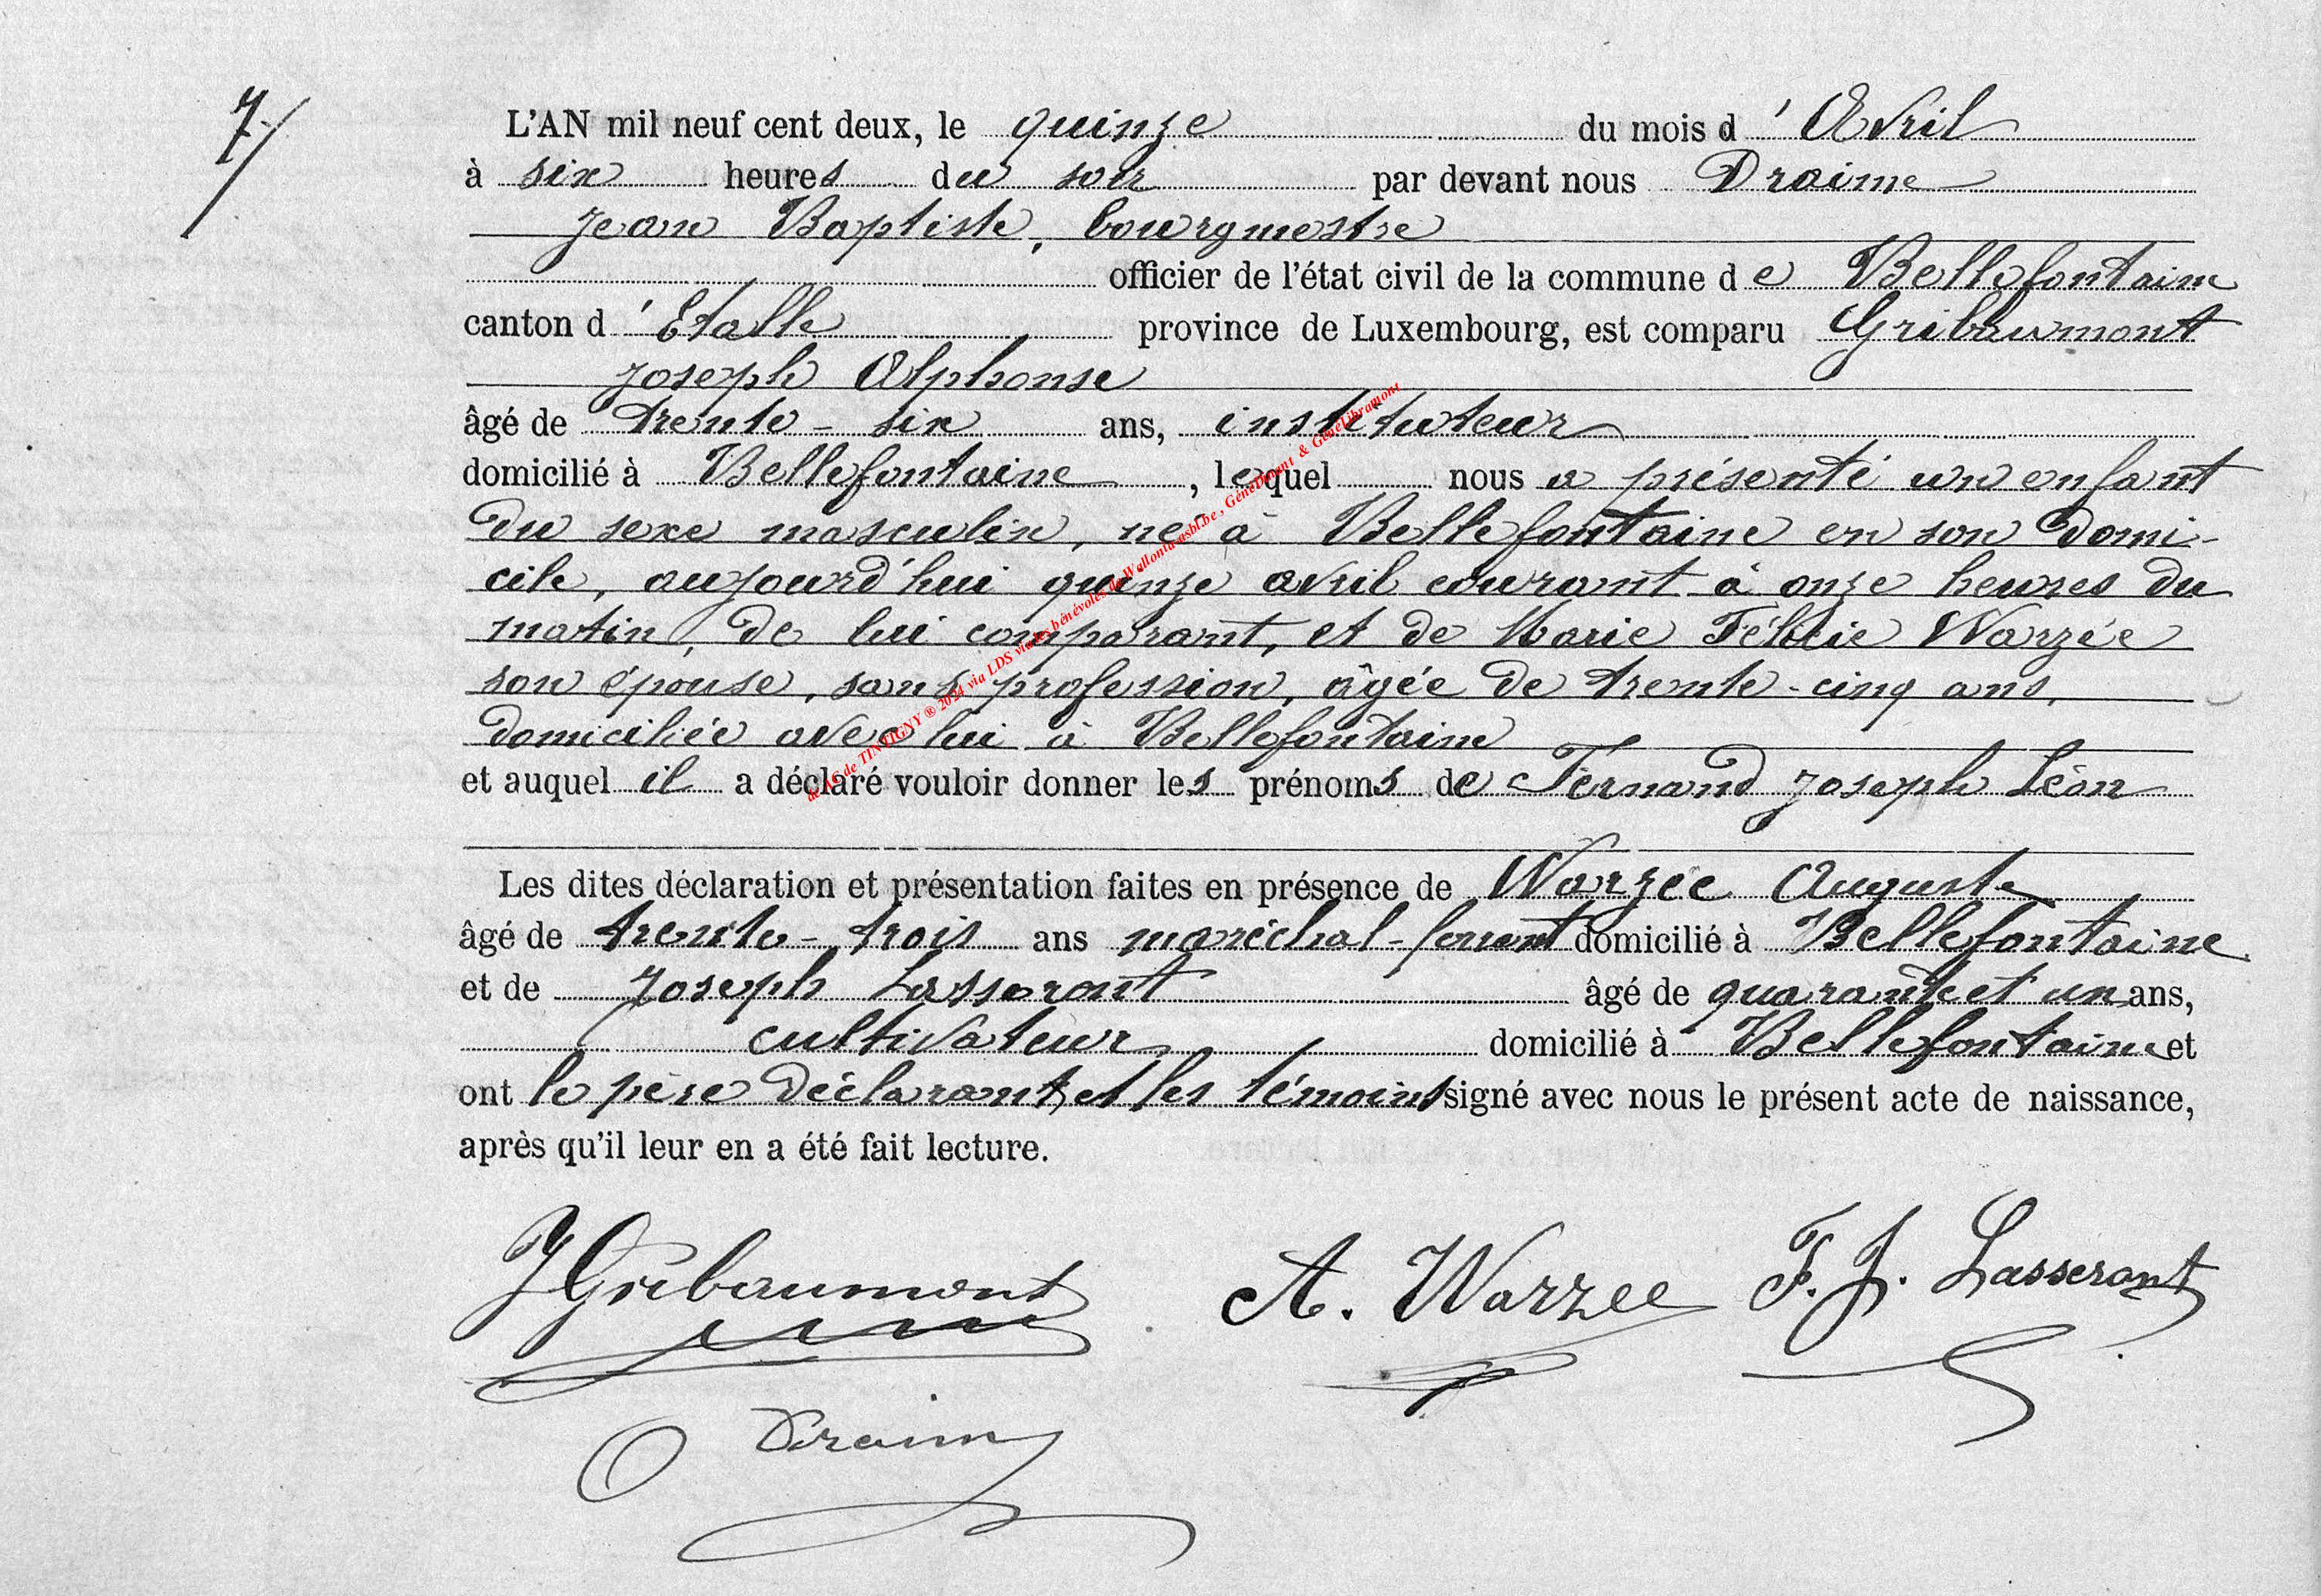 7/
L'AN mil neuf cent deux, le quinze du mois d'Avril
à six heures du soir par devant nous Draime
Jean Baptiste, bourgmestre
officier de l'état civil de la commune de Bellefontaine
canton d'Etalle province de Luxembourg, est comparu Gribaumont
Joseph Alphonse
âgé de trente-six ans, instituteur
domicilié à Bellefontaine, lequel nous a présenté un enfant
du sexe masculin, né à Bellefontaine en son domi-
cile, aujourd'hui quinze avril courant à onze heures du
matin, de lui comparant, et de Marie Félicie Warzée
son épouse, sans profession, âgée de trente-cinq ans,
domiciliée avec lui à Bellefontaine
et auquel il a déclaré vouloir donner les prénoms de Fernand Joseph Léon
Les dites déclaration et présentation faites en présence de Warzée Auguste
âgé de trente-trois ans maréchal-ferrant domicilié à Bellefontaine
et de Joseph Lasseront âgé de quarante et un ans,
cultivateur domicilié à Bellefontaine et
ont le père déclarant, et les témoins signé avec nous le présent acte de naissance,
après qu'il leur en a été fait lecture.
JGribaumont A. Warzee F. J. Lasseront
Draime
de AC de TINTIGNY ® 2024 via LDS via les bénévoles de Wallonia-asbl.be, GénéDinant & GénéLibramont